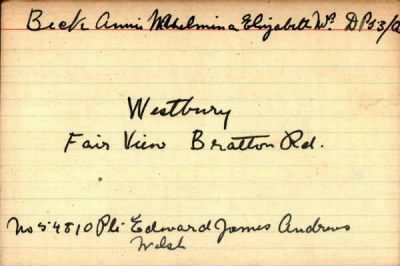 Beck Annie Wilhelmina Elizabeth Mrs. DP53/
Westbury
Fair View Bratton Rd.
No 54810 Pte Edward James Andrews
Welsh